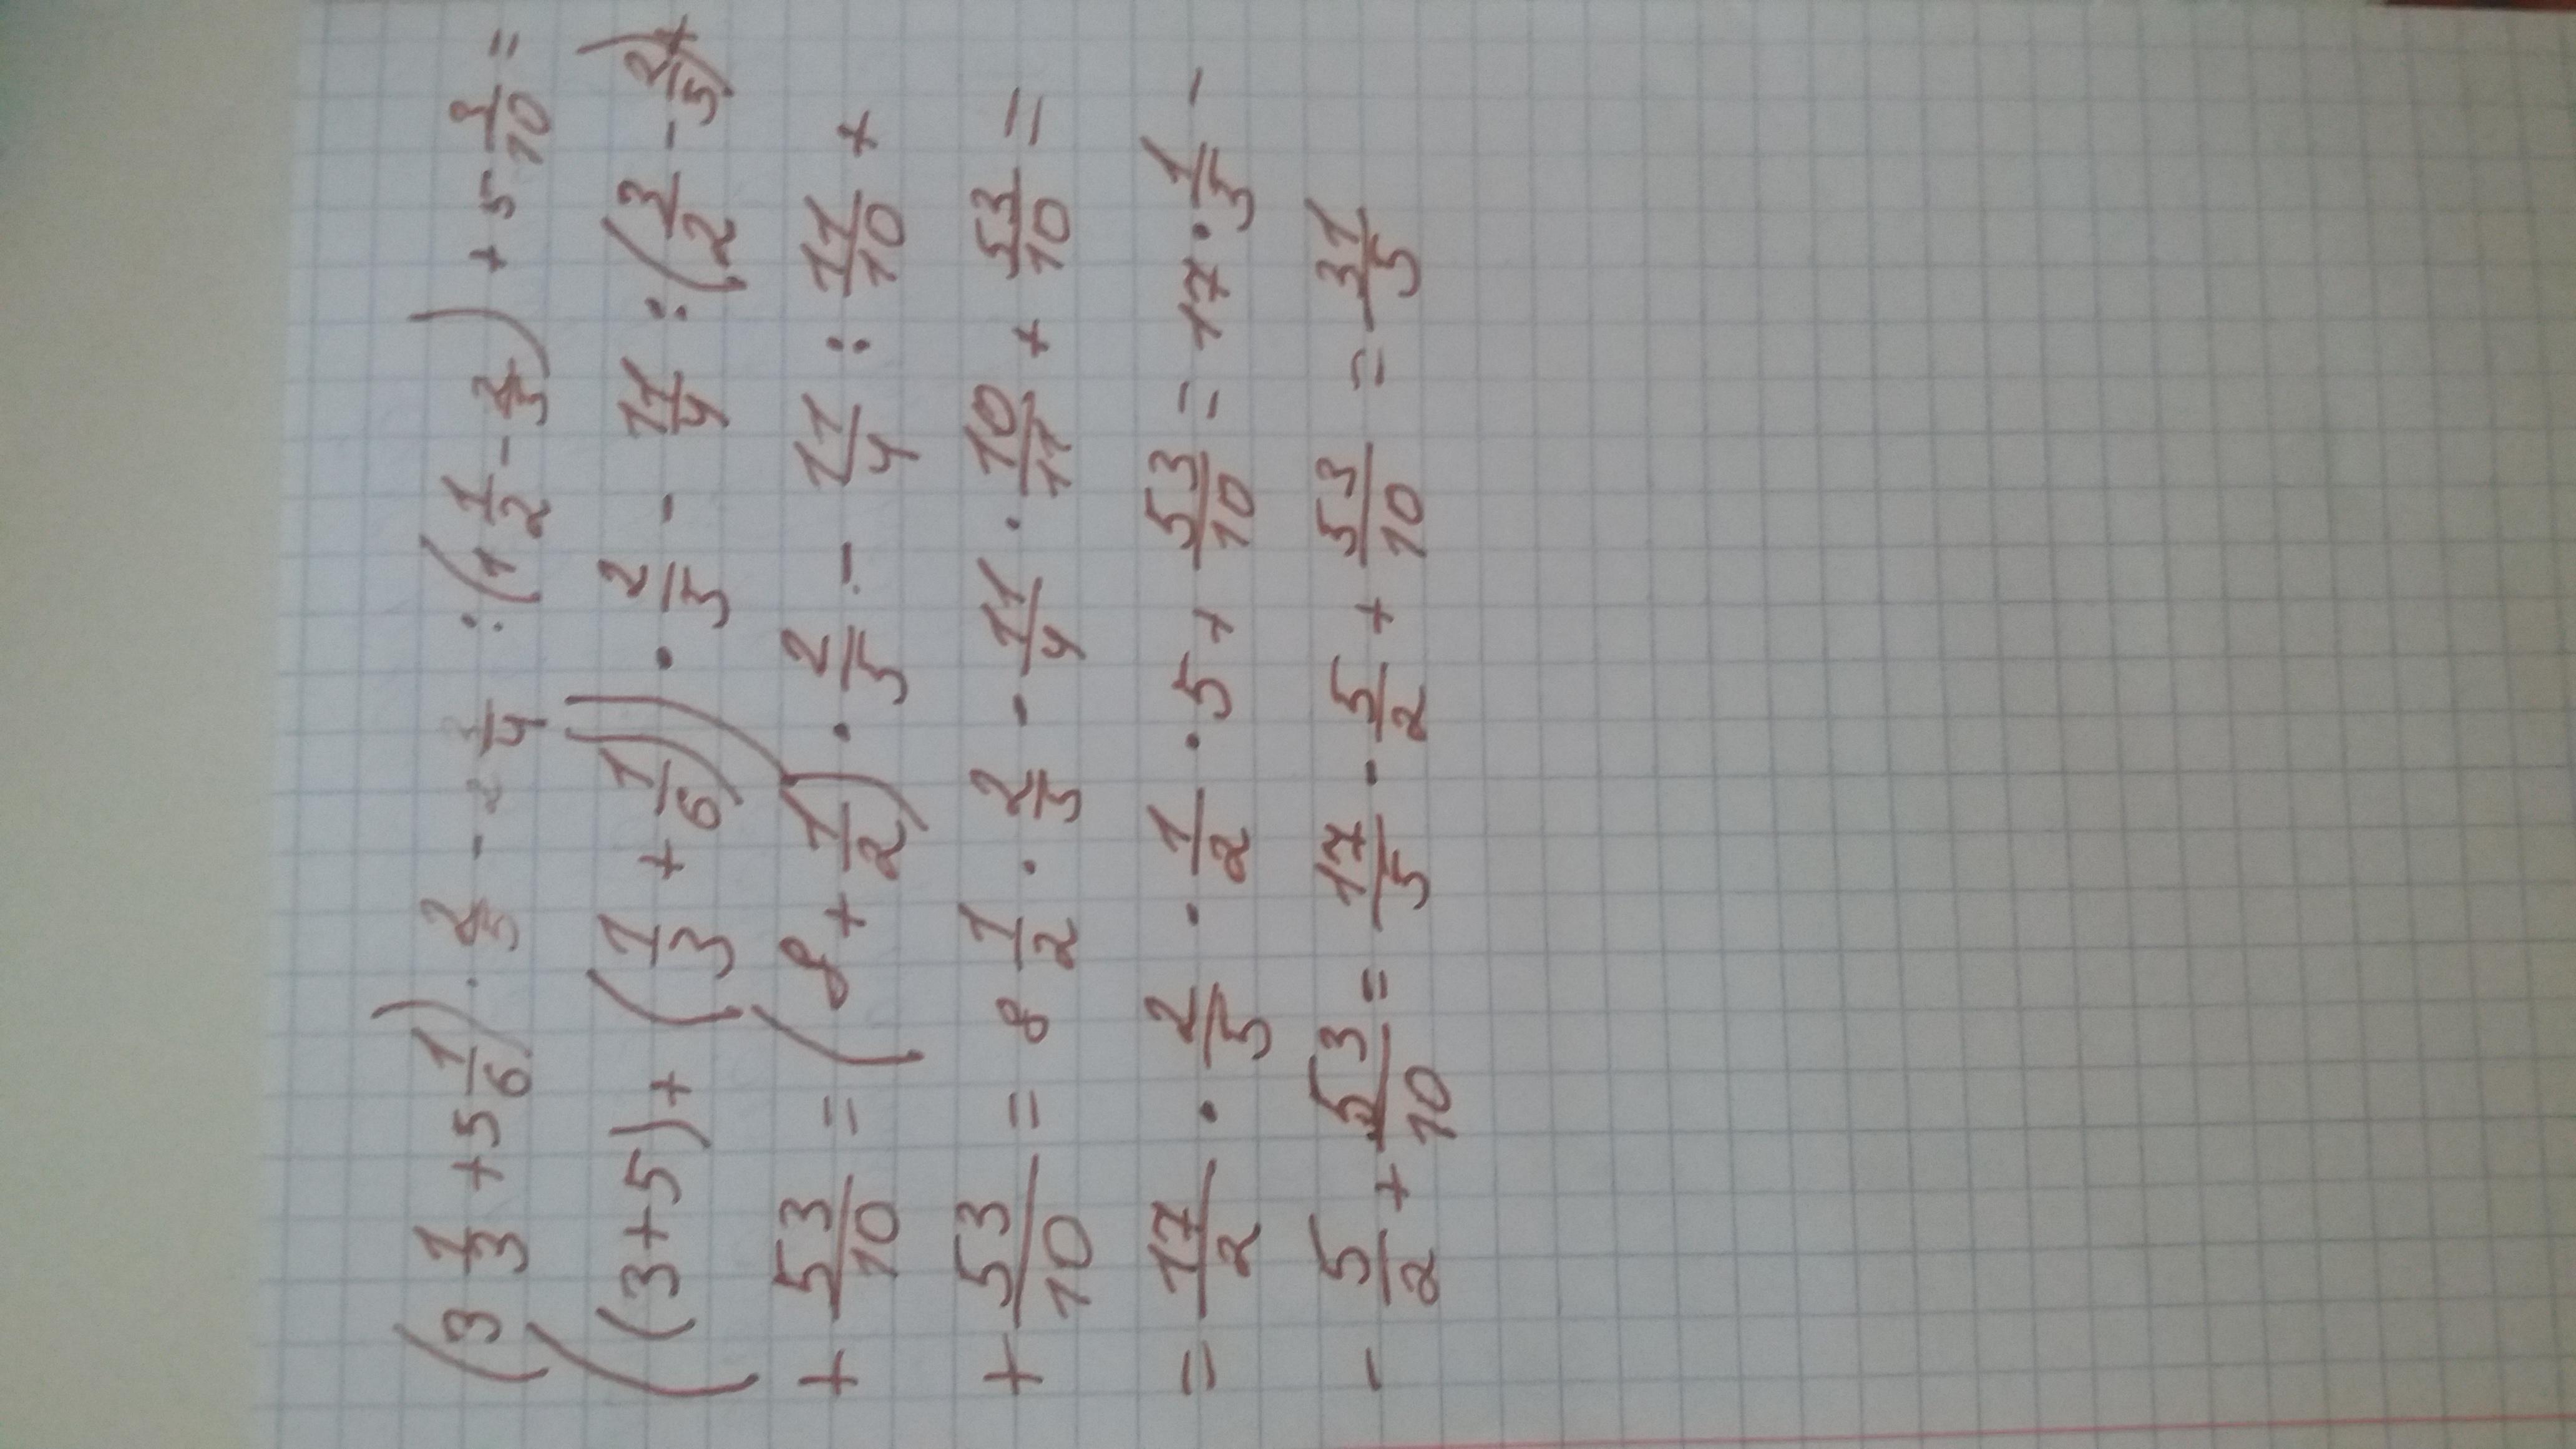 (3 1/3 + 5 1/6) · 2/5 - 2 3/4 : (1 1/2 - 2/5) + 5 3/10 =
((3+5) + (1/3 + 1/6)) · 2/5 - 11/4 : (3/2 - 2/5) +
+ 53/10 = (8 + 1/2) · 2/5 - 11/4 : 11/10 +
+ 53/10 = 8 1/2 · 2/5 - 11/4 · 10/11 + 53/10 =
= 17/2 · 2/5 · 1/2 · 5 + 53/10 = 17 · 1/5 -
- 5/2 + 53/10 = 17/5 - 5/2 + 53/10 = 31/5